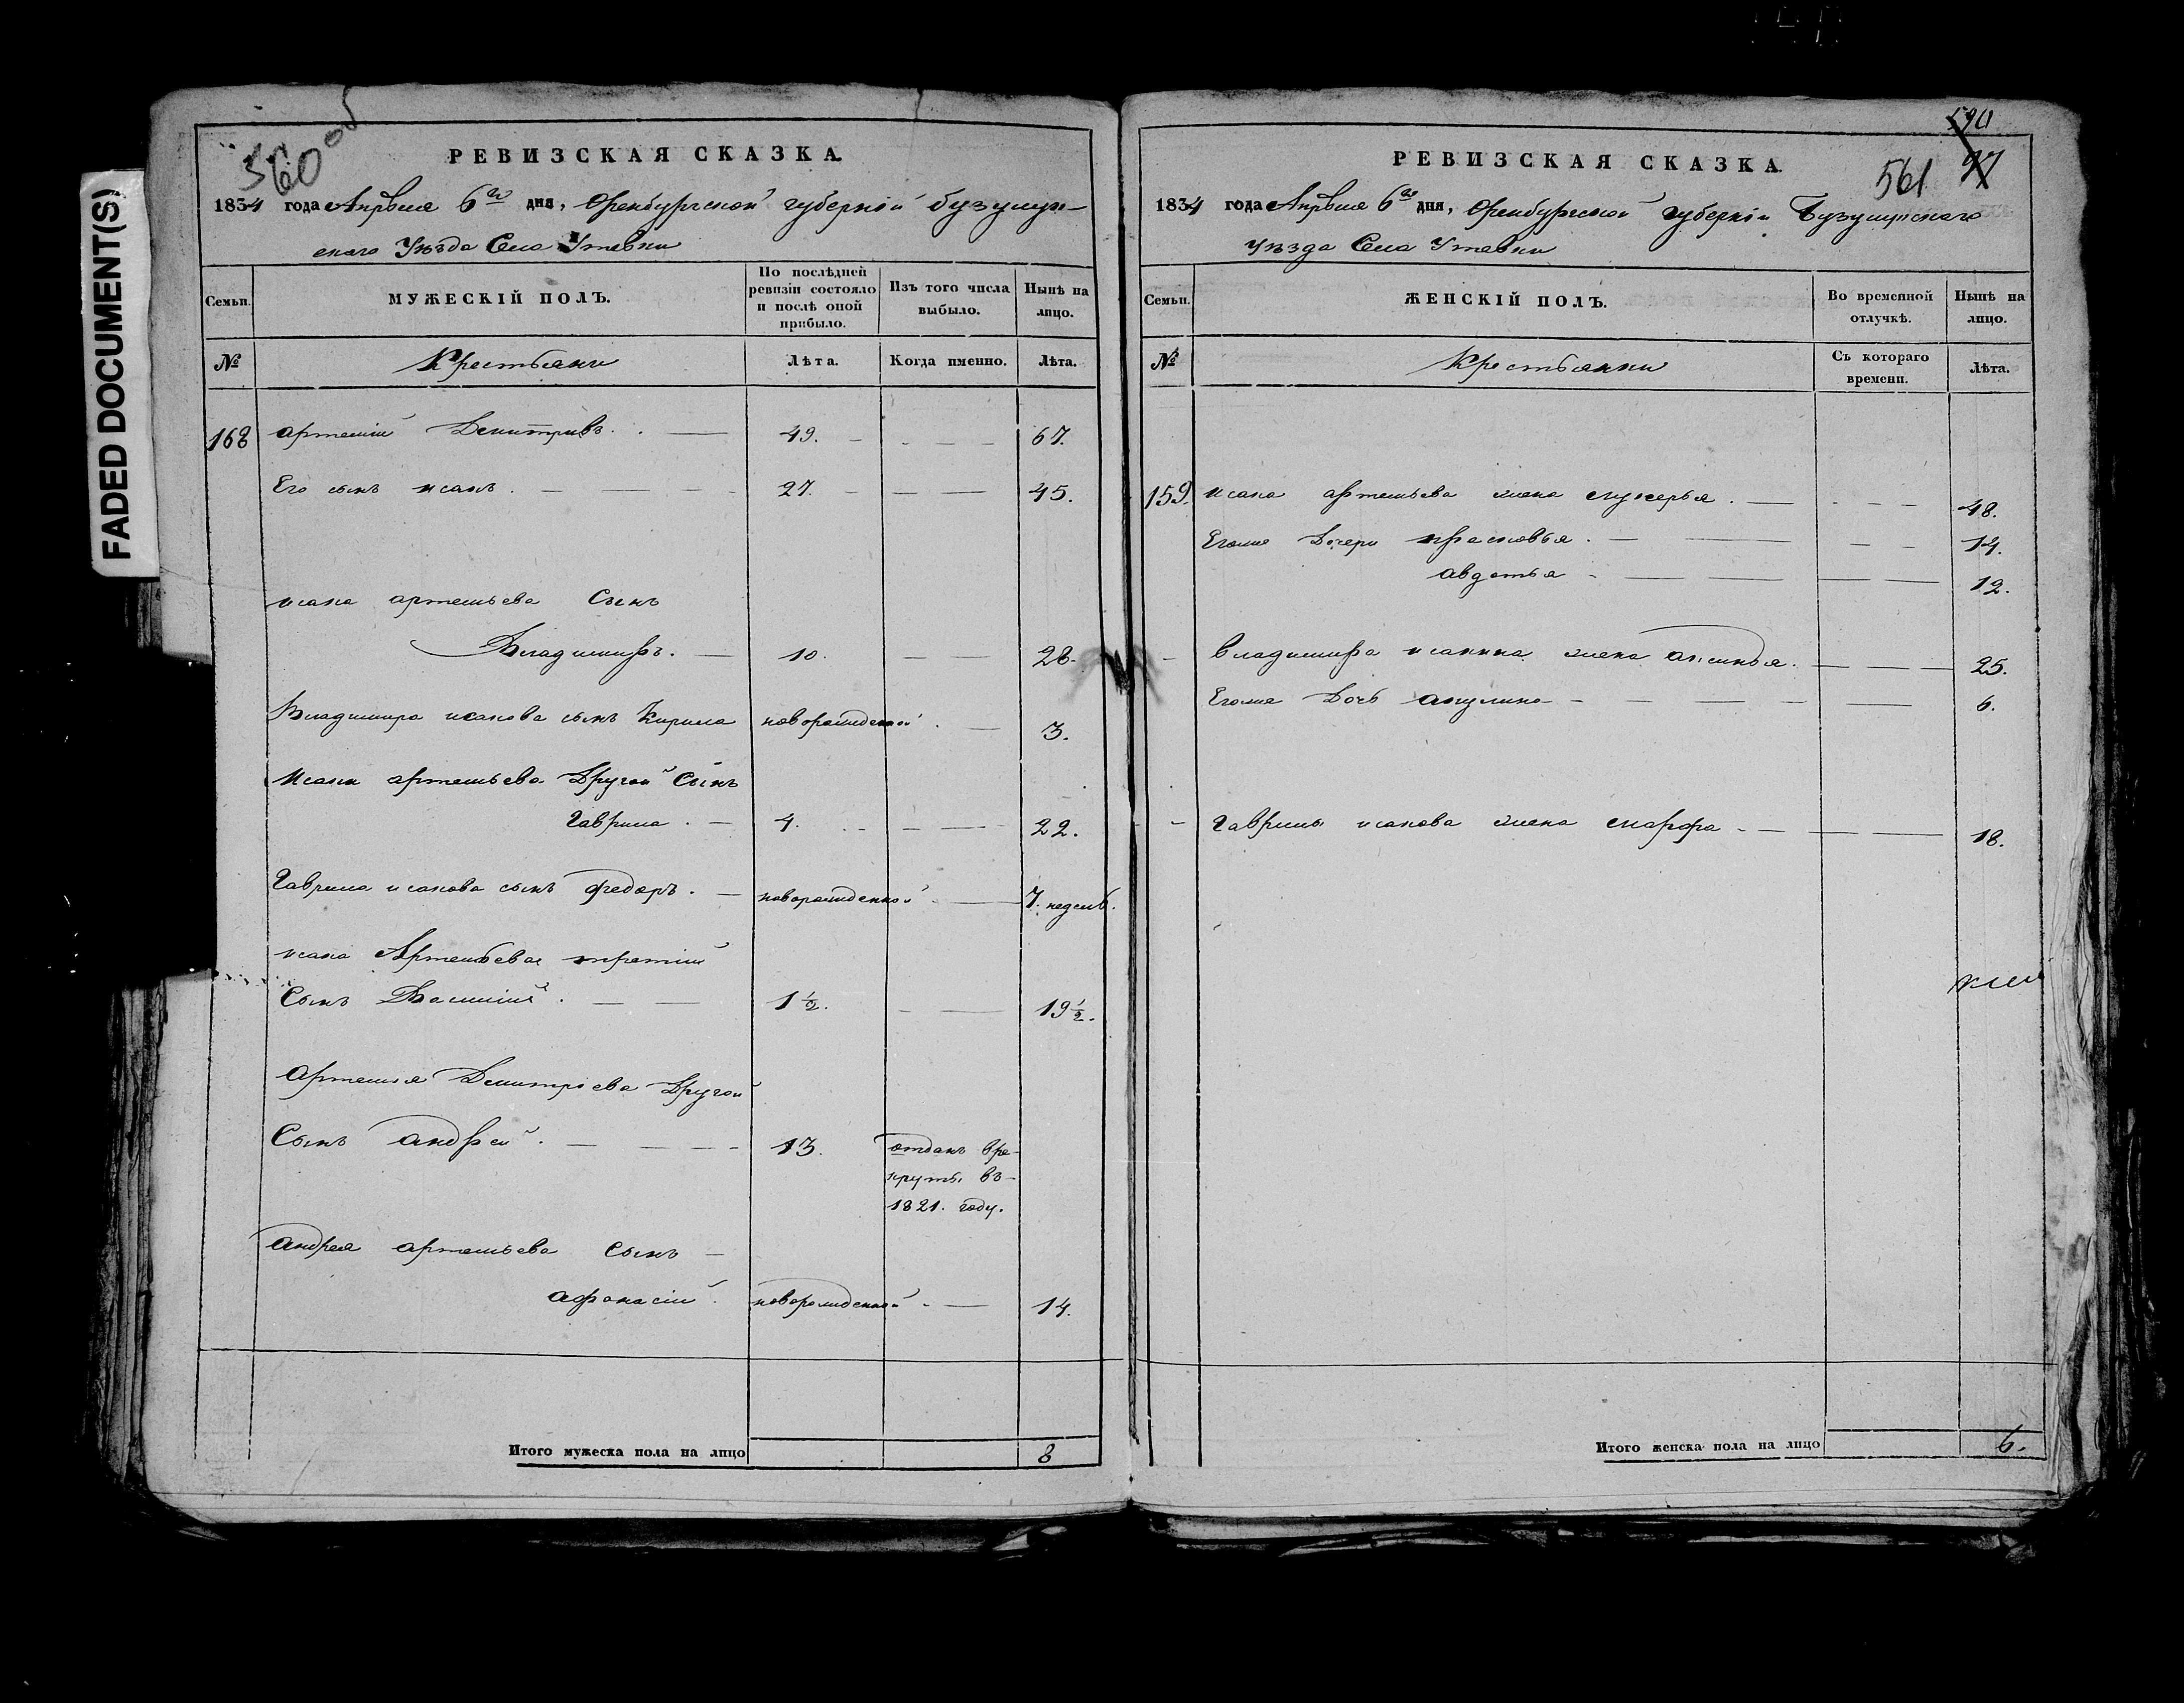 FADED DOCUMENT(S)
560 об
РЕВИЗСКАЯ СКАЗКА.
1834 года Апреля 6го дня, Оренбургской губернии бузулун-
скаго Уезда Села Утевки
Семьи.
МУЖЕСКІЙ ПОЛЪ.
По послѣдней ревизіи состояло и послѣ оной прибыло.
Изъ того числа выбыло.
Нынѣ на лицо.
№
Крестьяне
Лѣта.
Когда именно.
Лѣта.
168 артемий Демитривъ. 49. 67.
Его сынъ исакъ. 27. 45.
исака артемьева Сынъ
Владимиръ. 10. 28.
Владимира исакова сынъ Кирила новорожденной 3.
Исака артемьева Другой Сынъ
Гаврила. 4. 22.
Гаврила исакова сынъ Федоръ. новорожденной 7. недель.
исака Артемьева третий
Сынъ Василий. 1½. 19½.
Артемия Демитриева Другой
Сынъ андрей. 13. отданъ вре-
круты въ-
1821. году.
Андрея артемьева Сынъ
афонасий. новорожденной 14.
Итого мужеска пола на лицо 8
590
97
561
РЕВИЗСКАЯ СКАЗКА.
1834 года Апреля 6го дня, Оренбургской губернии Бузулунскаго
Уезда Села Утевки
Семьи.
ЖЕНСКІЙ ПОЛЪ.
Во временной отлучкѣ.
Нынѣ на лицо.
№
Крестьянки
Съ котораго времени.
Лѣта.
159. исака артемьева жена лукерья. 48.
Егоже Дочери прасковья. 14.
авдотья 12.
Владимира исакина жена аксинья. 25.
Егоже Дочь акулина 6.
Гаврилы исакова жена марфа 18.
Итого женска пола на лицо 6.